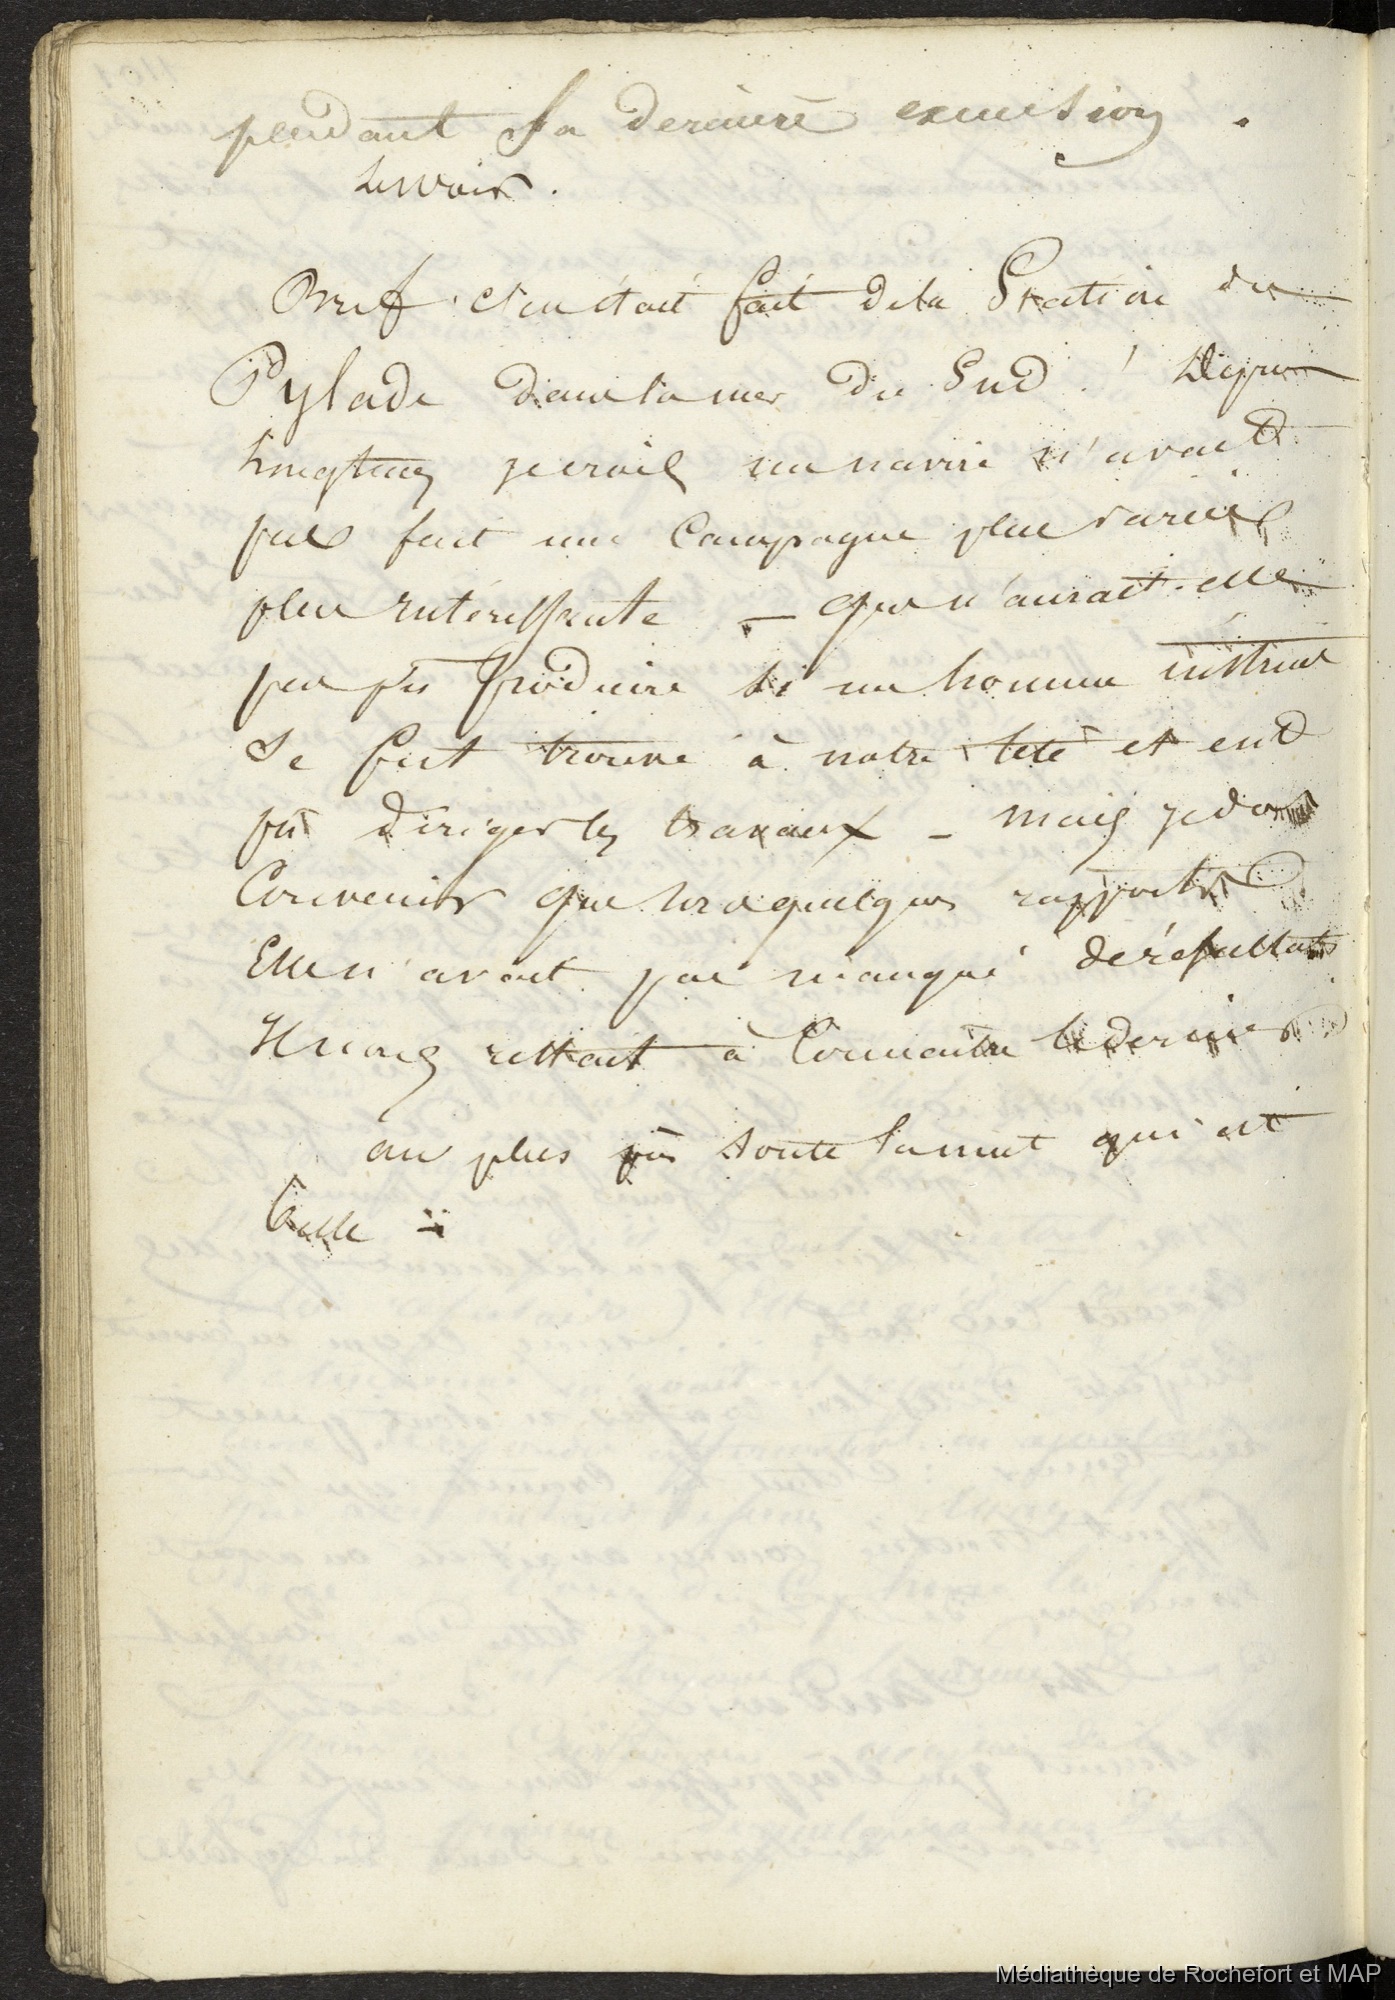 pendant sa dernière excursion.
Bref c'en était fait de la Station du
Pylade dans la mer du Sud ! Depuis
longtems je crois un navire n'avait
pas fait une Campagne plus variée
plus intéressante – que n'aurait-elle
pas pû produire si un homme instruit
se fut trouvé à notre tête et eut
pû diriger les travaux – mais je dois
Convenir que sous quelques rapports
Elle n'avait pas manqué de résultats
Il nous restait à Connaître le dernier
au plus près toute la nuit qui est
belle
Médiathèque de Rochefort et MAP